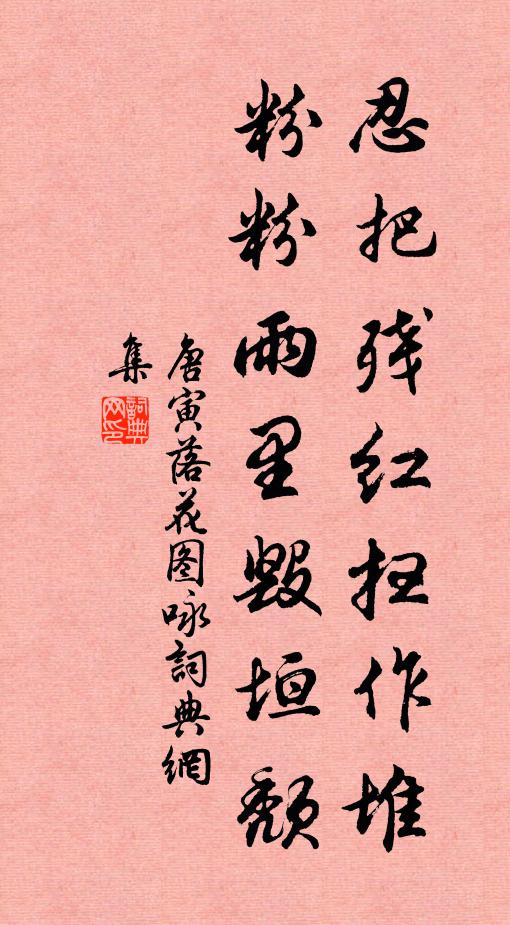 忍把残红扫作堆
粉粉雨里毁垣颓
唐寅落花图咏詞典網
集
詞典
网印